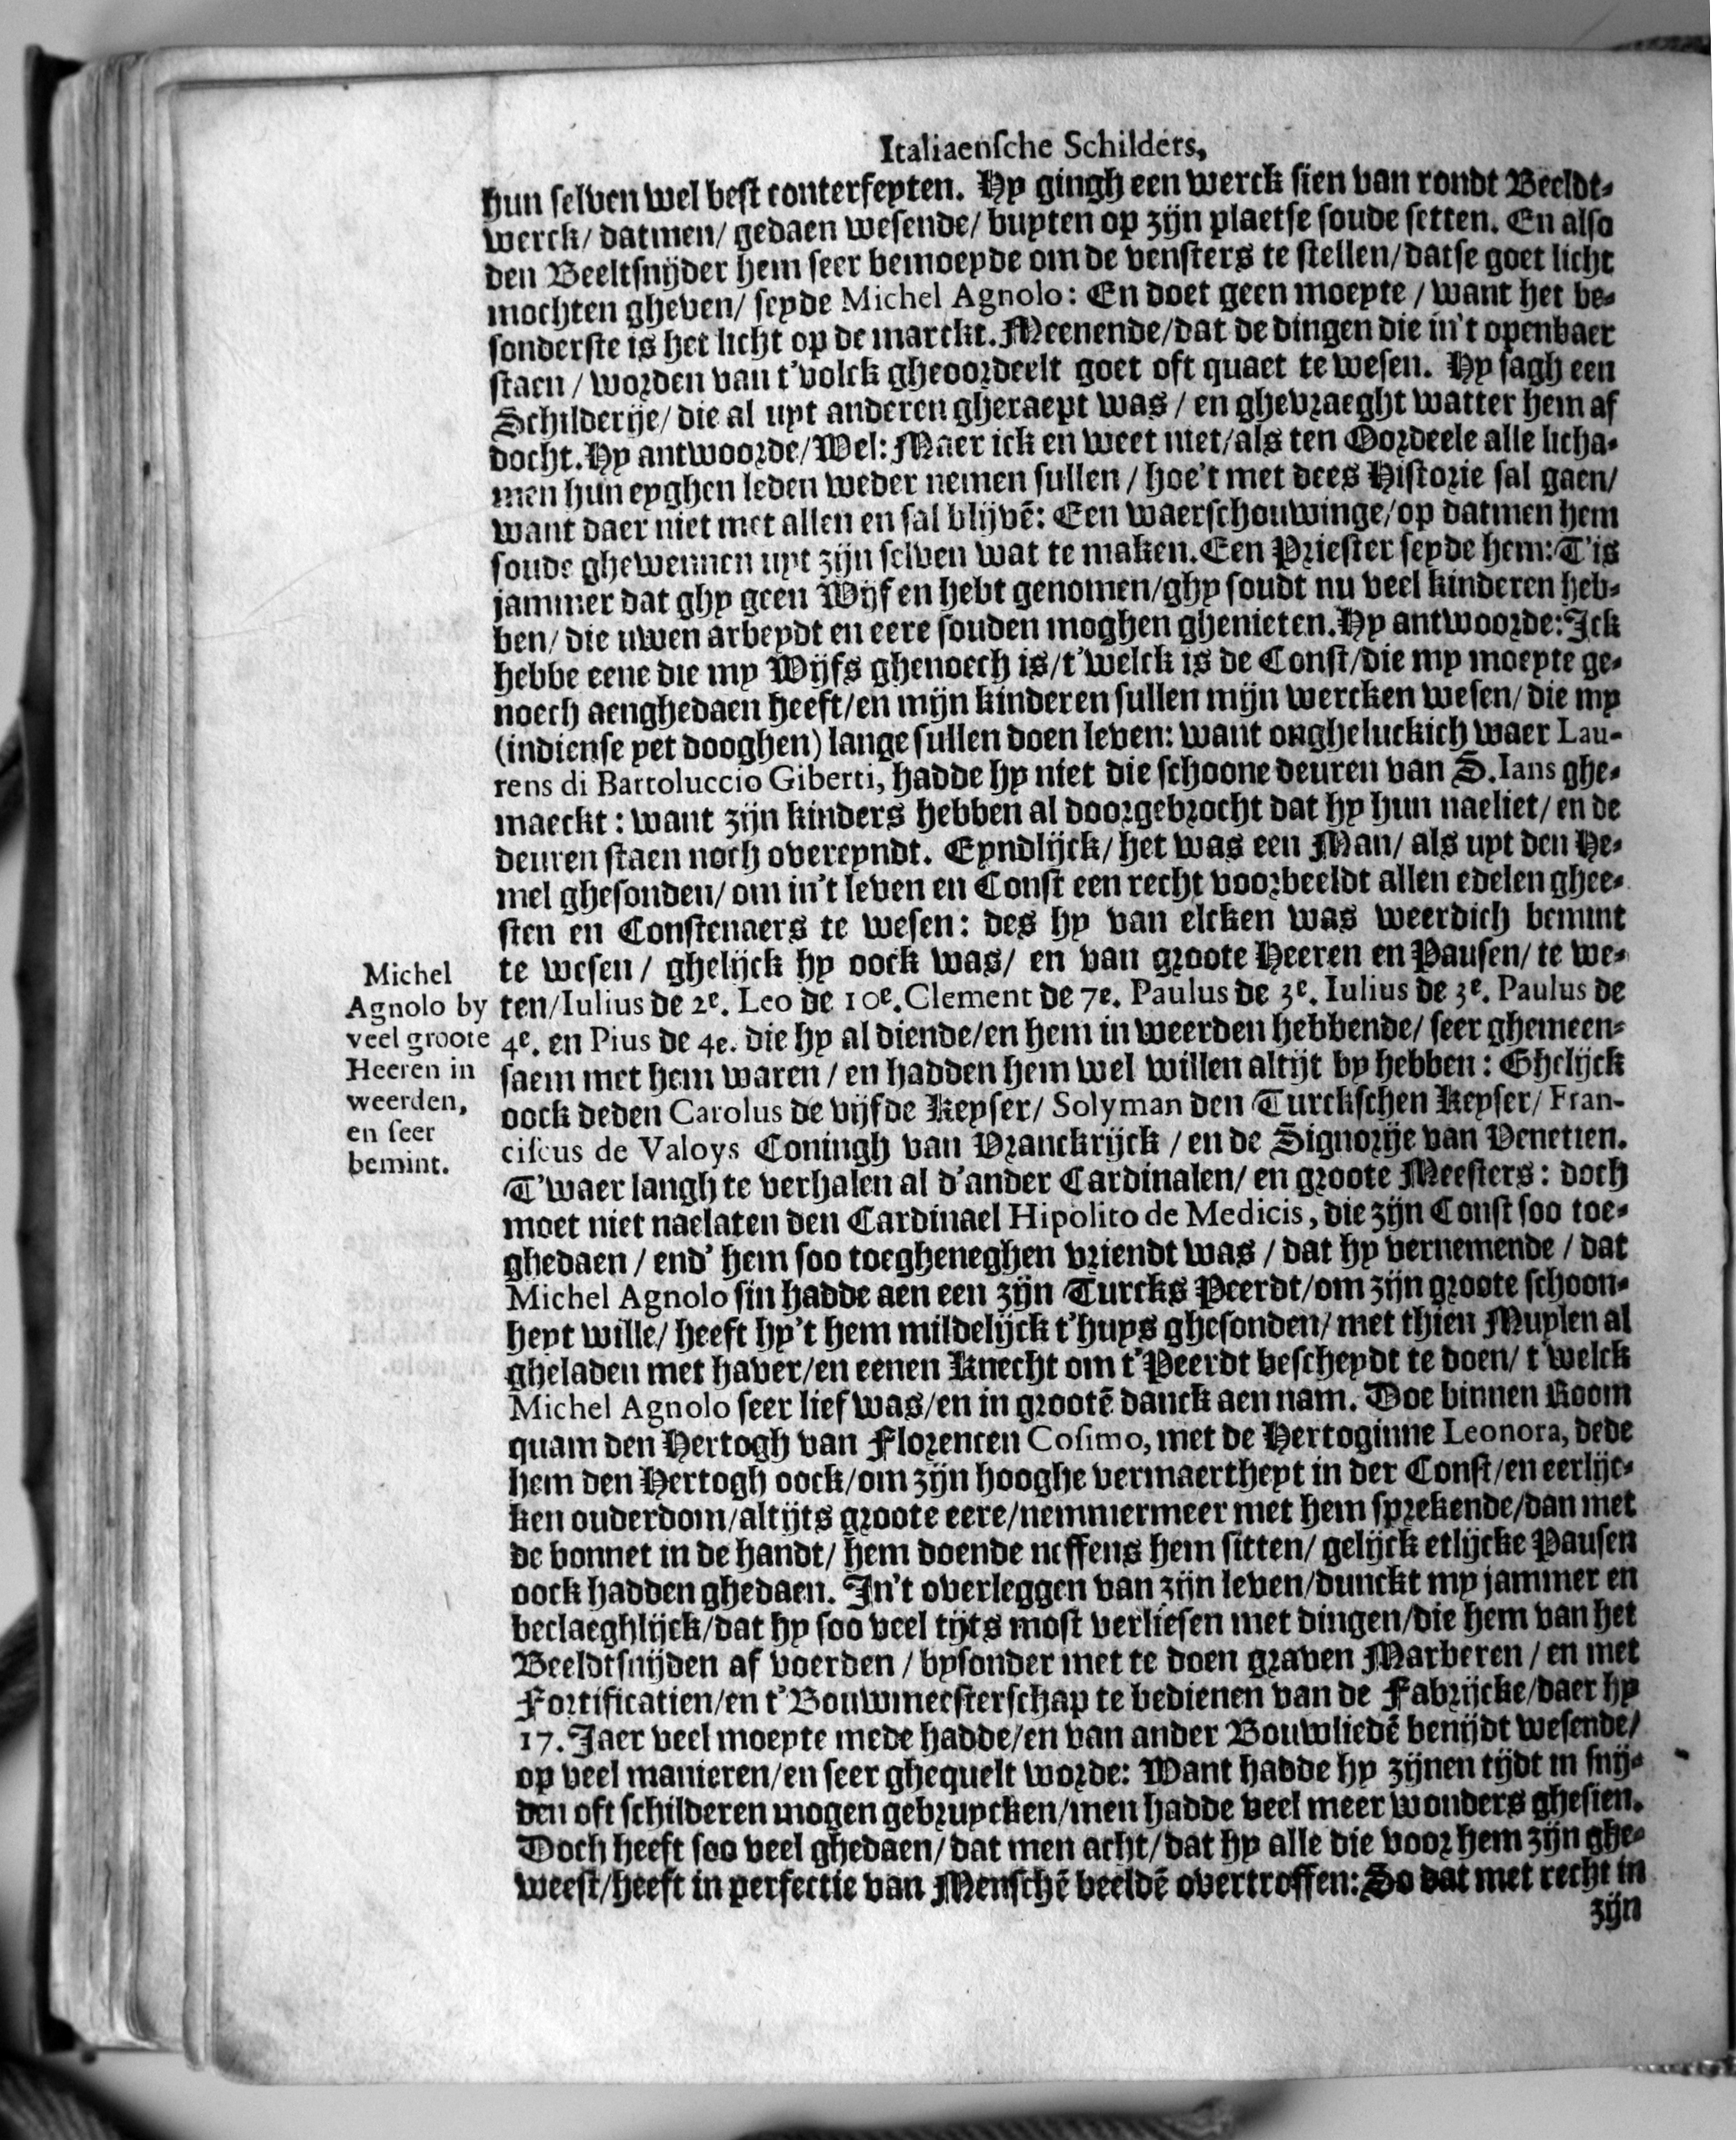 Italiaensche Schilders,
hun selven wel best conterfeyten. Hy gingh een werck sien van rondt Beeldt-
werck/ datmen/ gedaen wesende/ buyten op zijn plaetse soude setten. En also
den Beeltsnijder hem seer bemoeyde om de vensters te stellen/datse goet licht
mochten gheven/ seyde Michel Agnolo: En doet geen moeyte / want het be-
sonderste is het licht op de marckt. Meenende/dat de dingen die in't openbaer
staen / worden van t'volck gheoordeelt goet oft quaet te wesen. Hy sagh een
Schilderije/ die al uyt anderen gheraept was / en ghevraeght watter hem af
docht. Hy antwoorde/Wel: Maer ick en weet niet/als ten Oordeele alle licha-
men hun eyghen leden weder nemen sullen / hoe't met dees Historie sal gaen/
want daer niet met allen en sal blijvē: Een waerschouwinge/op datmen hem
soude ghewennen uyt zijn selven wat te maken. Een Priester seyde hem: T'is
jammer dat ghy geen Wijf en hebt genomen/ghy soudt nu veel kinderen heb-
ben/ die uwen arbeydt en eere souden moghen ghenieten. Hy antwoorde: Ick
hebbe eene die my Wijfs ghenoech is/t'welck is de Const/die my moeyte ge-
noech aenghedaen heeft/en mijn kinderen sullen mijn wercken wesen/ die my
(indiense yet dooghen) lange sullen doen leven: want ongheluckich waer Lau-
rens di Bartoluccio Giberti, hadde hy niet die schoone deuren van S. Ians ghe-
maeckt: want zijn kinders hebben al doorgebrocht dat hy hun naeliet/ en de
deuren staen noch overeyndt. Eyndlijck/ het was een Man/ als uyt den He-
mel ghesonden/ om in't leven en Const een recht voorbeeldt allen edelen ghee-
sten en Constenaers te wesen: des hy van elcken was weerdich bemint
te wesen/ ghelijck hy oock was/ en van groote Heeren en Pausen/ te we-
ten/Iulius de 2e. Leo de 10e. Clement de 7e. Paulus de 3e. Iulius de 3e. Paulus de
4e. en Pius de 4e. die hy al diende/en hem in weerden hebbende/ seer ghemeen-
saem met hem waren / en hadden hem wel willen altijt by hebben: Ghelijck
oock deden Carolus de vijfde Keyser/ Solyman den Turckschen Keyser/ Fran-
ciscus de Valoys Coningh van Vranckrijck / en de Signorije van Venetien.
T'waer langh te verhalen al d'ander Cardinalen/ en groote Meesters: doch
moet niet naelaten den Cardinael Hipolito de Medicis, die zijn Const soo toe-
ghedaen / end' hem soo toegheneghen vriendt was / dat hy vernemende / dat
Michel Agnolo sin hadde aen een zijn Turcks Peerdt/om zijn groote schoon-
heyt wille/ heeft hy't hem mildelijck t'huys ghesonden/ met thien Muylen al
gheladen met haver/en eenen Knecht om t'Peerdt bescheydt te doen/ t'welck
Michel Agnolo seer lief was/en in grootē danck aen nam. Doe binnen Room
quam den Hertogh van Florencen Cosimo, met de Hertoginne Leonora, dede
hem den Hertogh oock/om zijn hooghe vermaertheyt in der Const/en eerlijc-
ken ouderdom/altijts groote eere/nemmermeer met hem sprekende/dan met
de bonnet in de handt/ hem doende neffens hem sitten/ gelijck etlijcke Pausen
oock hadden ghedaen. In't overleggen van zijn leven/dunckt my jammer en
beclaeghlijck/dat hy soo veel tijts most verliesen met dingen/die hem van het
Beeldtsnijden af voerden / bysonder met te doen graven Marberen / en met
Fortificatien/en t'Bouwmeesterschap te bedienen van de Fabrijcke/daer hy
17. Jaer veel moeyte mede hadde/en van ander Bouwliedē benijdt wesende/
op veel manieren/en seer ghequelt worde: Want hadde hy zijnen tijdt in snij-
den oft schilderen mogen gebruycken/men hadde veel meer wonders ghesien.
Doch heeft soo veel ghedaen/dat men acht/dat hy alle die voor hem zijn ghe-
weest/heeft in perfectie van Menschē beeldē overtroffen: So dat met recht in
zijn
Michel
Agnolo by
veel groote
Heeren in
weerden,
en seer
bemint.